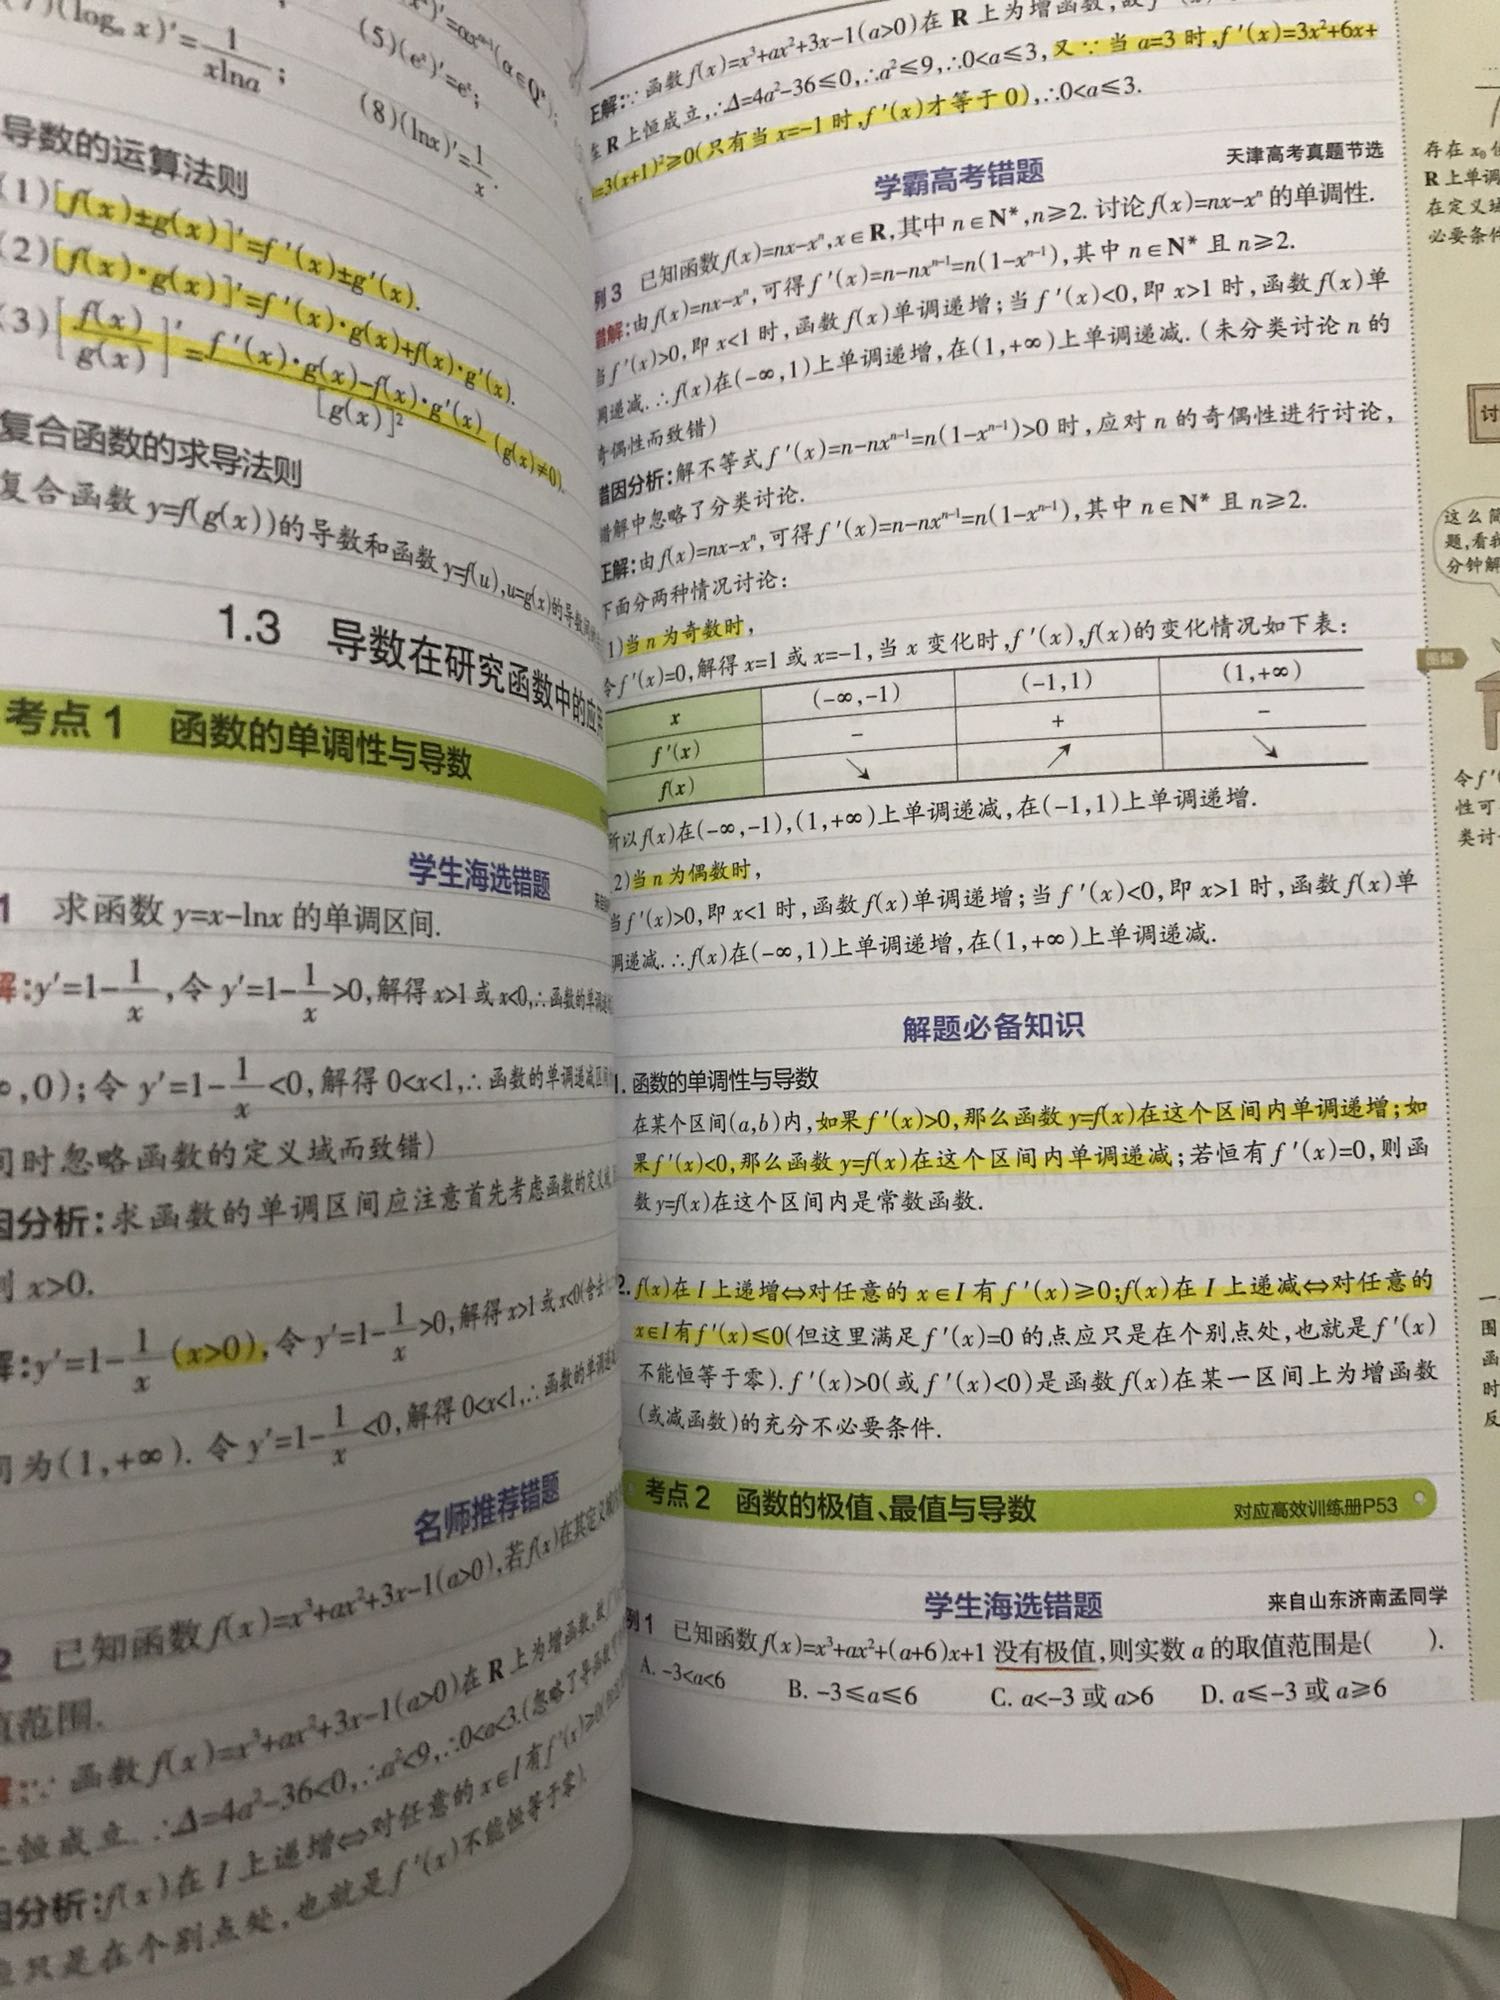 (7)(logₐx)′=1/(xlna);
(5)(eˣ)′=eˣ;
(8)(lnx)′=1/x.
导数的运算法则
(1)[f(x)±g(x)]′=f′(x)±g′(x).
(2)[f(x)·g(x)]′=f′(x)·g(x)+f(x)·g′(x).
(3)[f(x)/g(x)]′=(f′(x)·g(x)-f(x)·g′(x))/[g(x)]²(g(x)≠0).
复合函数的求导法则
复合函数y=f(g(x))的导数和函数y=f(u),u=g(x)的导数
1.3 导数在研究函数中的应用
考点1 函数的单调性与导数
学生海选错题
1 求函数y=x-lnx的单调区间.
解:y′=1-1/x,令y′=1-1/x>0,解得x>1或x<0,∴函数的单调
,0);令y′=1-1/x<0,解得0<x<1,∴函数的单调递减区间
同时忽略函数的定义域而致错)
因分析:求函数的单调区间应注意首先考虑函数的定义域
x>0.
解:y′=1-1/x(x>0),令y′=1-1/x>0,解得x>1或x<0(舍去
间为(1,+∞).令y′=1-1/x<0,解得0<x<1,∴函数的单调递减
名师推荐错题
2 已知函数f(x)=x³+ax²+3x-1(a>0),若f(x)在其定义域
值范围.
解:∵函数f(x)=x³+ax²+3x-1(a>0)在R上为增函数,故
上恒成立.∴Δ=4a²-36<0,∴a²<9,∴0<a<3.(忽略了导函数
因分析:f(x)在I上递增⇔对任意的x∈I有f′(x)≥0
应只是在个别点处,也就是f′(x)不能恒等于零).
正解:∵函数f(x)=x³+ax²+3x-1(a>0)在R上为增函数,故
在R上恒成立,∴Δ=4a²-36≤0,∴a²≤9,∴0<a≤3,又∵当a=3时,f′(x)=3x²+6x+
=3(x+1)²≥0(只有当x=-1时,f′(x)才等于0),∴0<a≤3.
学霸高考错题
天津高考真题节选
例3 已知函数f(x)=nx-xⁿ,x∈R,其中n∈N*,n≥2.讨论f(x)=nx-xⁿ的单调性.
错解:由f(x)=nx-xⁿ,可得f′(x)=n-nxⁿ⁻¹=n(1-xⁿ⁻¹),其中n∈N*且n≥2.
当f′(x)>0,即x<1时,函数f(x)单调递增;当f′(x)<0,即x>1时,函数f(x)单
调递减.∴f(x)在(-∞,1)上单调递增,在(1,+∞)上单调递减.(未分类讨论n的
奇偶性而致错)
错因分析:解不等式f′(x)=n-nxⁿ⁻¹=n(1-xⁿ⁻¹)>0时,应对n的奇偶性进行讨论,
错解中忽略了分类讨论.
正解:由f(x)=nx-xⁿ,可得f′(x)=n-nxⁿ⁻¹=n(1-xⁿ⁻¹),其中n∈N*且n≥2.
下面分两种情况讨论:
1)当n为奇数时,
令f′(x)=0,解得x=1或x=-1,当x变化时,f′(x),f(x)的变化情况如下表:
x (-∞,-1) (-1,1) (1,+∞)
f′(x) - + -
f(x) ↘ ↗ ↘
所以f(x)在(-∞,-1),(1,+∞)上单调递减,在(-1,1)上单调递增.
2)当n为偶数时,
当f′(x)>0,即x<1时,函数f(x)单调递增;当f′(x)<0,即x>1时,函数f(x)单
调递减.∴f(x)在(-∞,1)上单调递增,在(1,+∞)上单调递减.
解题必备知识
1.函数的单调性与导数
在某个区间(a,b)内,如果f′(x)>0,那么函数y=f(x)在这个区间内单调递增;如
果f′(x)<0,那么函数y=f(x)在这个区间内单调递减;若恒有f′(x)=0,则函
数y=f(x)在这个区间内是常数函数.
2.f(x)在I上递增⇔对任意的x∈I有f′(x)≥0;f(x)在I上递减⇔对任意的
x∈I有f′(x)≤0(但这里满足f′(x)=0的点应只是在个别点处,也就是f′(x)
不能恒等于零).f′(x)>0(或f′(x)<0)是函数f(x)在某一区间上为增函数
(或减函数)的充分不必要条件.
考点2 函数的极值、最值与导数 对应高效训练册P53
学生海选错题
来自山东济南孟同学
例1 已知函数f(x)=x³+ax²+(a+6)x+1没有极值,则实数a的取值范围是( ).
A. -3<a<6 B. -3≤a≤6 C. a<-3或a>6 D. a≤-3或a≥6
存在x₀
R上单调
在定义域
必要条件
讨
这么简
题,看我
分钟解
图解
令f′
性可
类讨
一
图
函
时
反